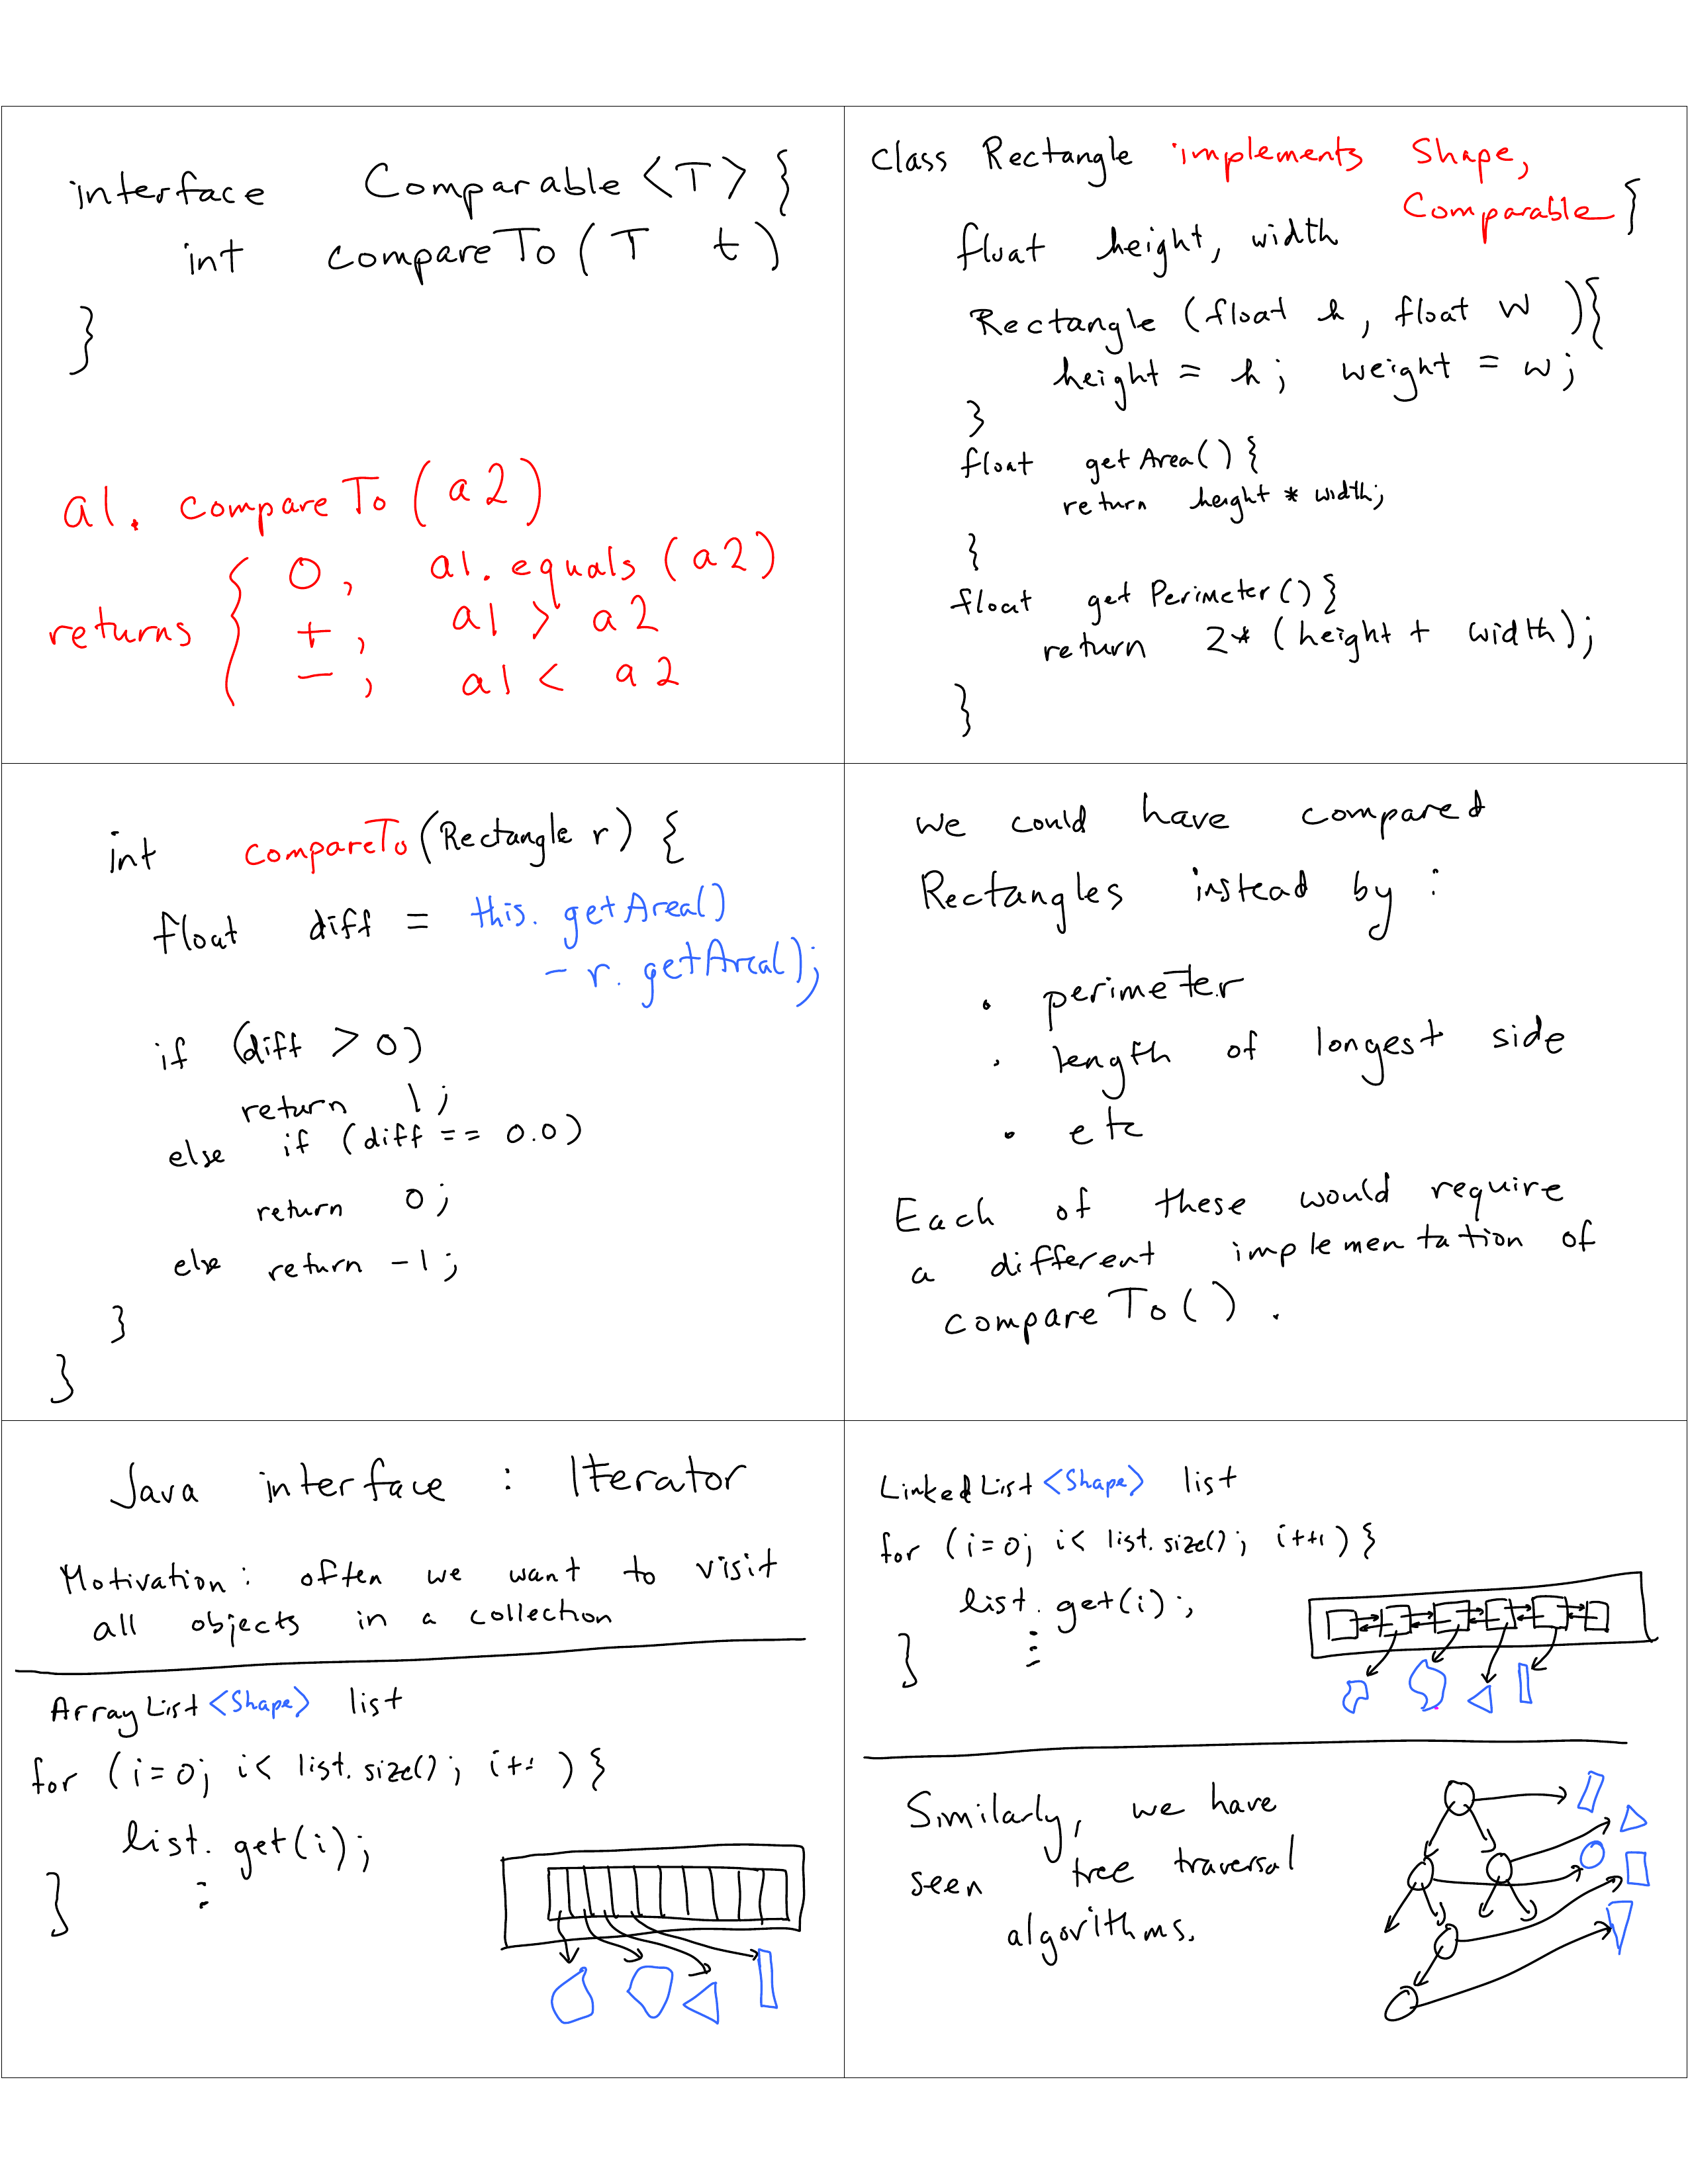 interface Comparable <T> {
int compareTo ( T t )
}
a1. compareTo ( a2 )
returns { 0 , a1. equals (a2)
+ , a1 > a2
- , a1 < a2
class Rectangle implements Shape,
Comparable {
float height, width
Rectangle (float h , float w ){
height = h ; weight = w ;
}
float getArea() {
return height * width;
}
float getPerimeter() {
return 2* (height + width);
}
int compareTo (Rectangle r) {
float diff = this. getArea()
- r. getArea();
if (diff > 0)
return 1 ;
else if (diff == 0.0)
return 0 ;
else return -1 ;
}
}
We could have compared
Rectangles instead by :
• perimeter
• length of longest side
• etc
Each of these would require
a different implementation of
compareTo () .
Java interface : Iterator
Motivation : often we want to visit
all objects in a collection
ArrayList <Shape> list
for ( i = 0; i < list. size() ; i++ ) {
list. get(i) ;
:
}
LinkedList <Shape> list
for ( i = 0; i < list. size() ; i++ ) {
list. get(i) ;
:
}
Similarly, we have
seen tree traversal
algorithms.